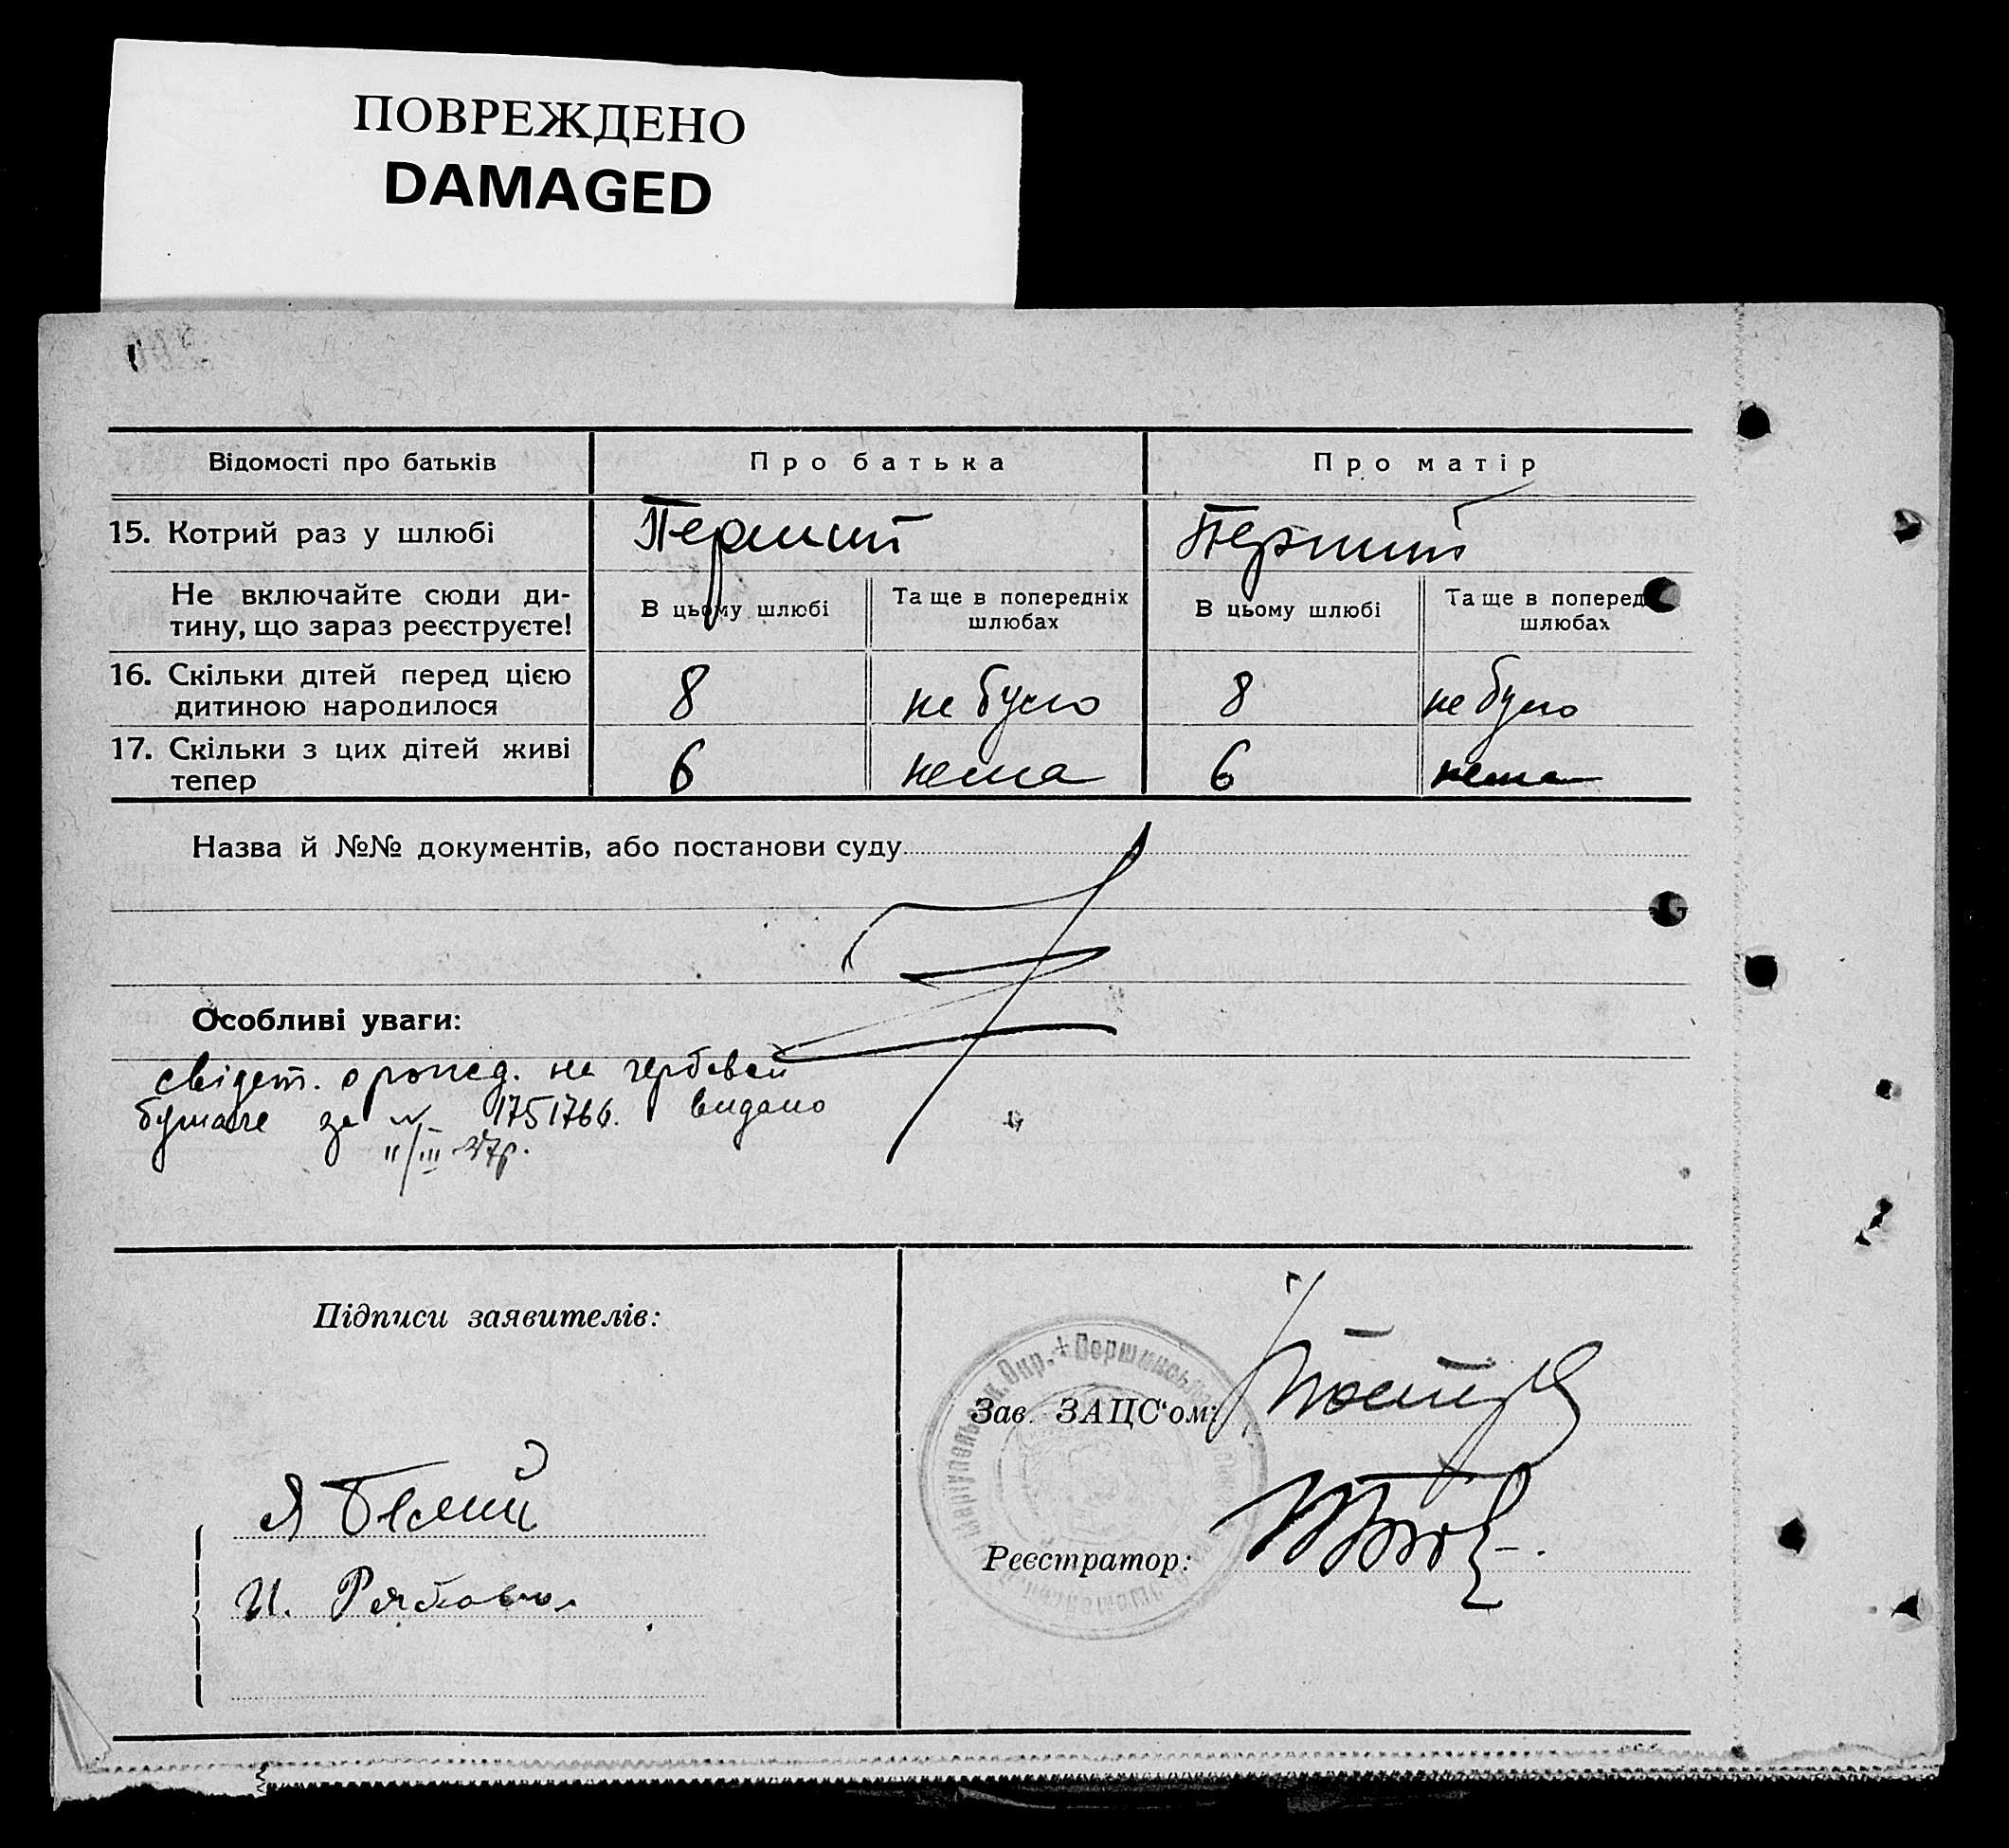 ПОВРЕЖДЕНО
DAMAGED
Відомості про батьків
Про батька
Про матір
15. Котрий раз у шлюбі
Перший
Перший
Не включайте сюди ди-
тину, що зараз реєструєте!
В цьому шлюбі
Та ще в попередніх
шлюбах
В цьому шлюбі
Та ще в поперед
шлюбах
16. Скільки дітей перед цією
дитиною народилося
8
не було
8
не було
17. Скільки з цих дітей живі
тепер
6
нема
6
нема
Назва й №№ документів, або постанови суду
Особливі уваги:
свідет. о рожед. на гербовай
бумаге за № 1751766. видано
11/III 27р.
Підписи заявителів:
Я Белий
И.
Зав. ЗАЦС'ом:
Реєстратор: